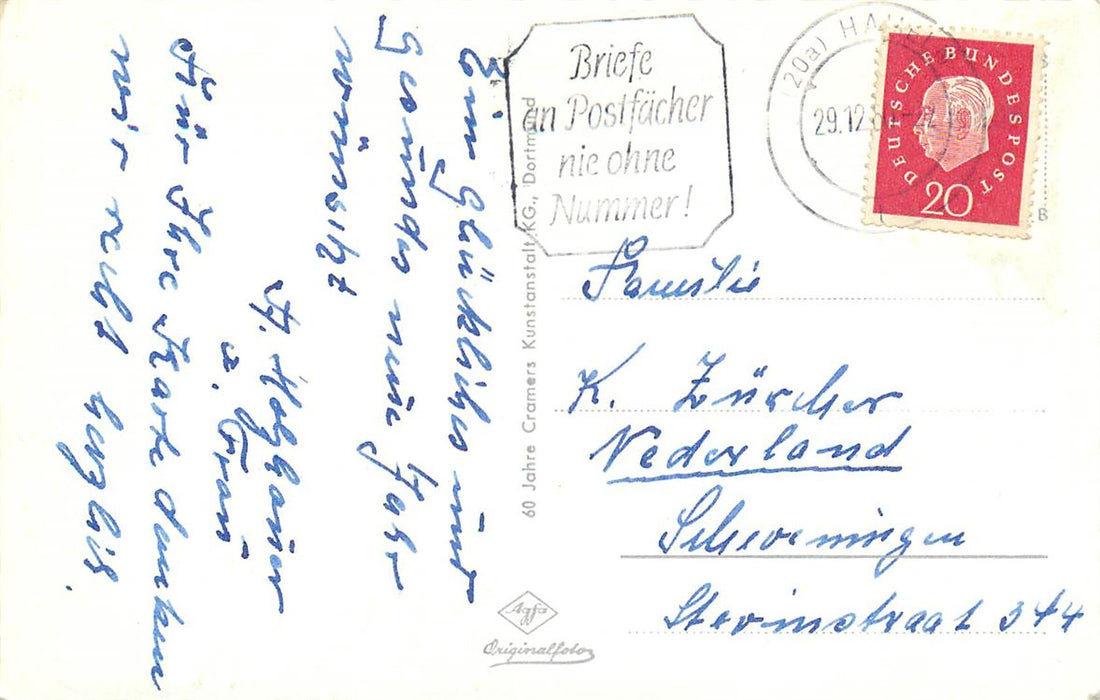 Ein glückliches und
gesundes neue Jahr
wünscht
H. Holzhauer
u. Frau
Für Ihre Karte danken
wir recht herzlich.
60 Jahre Cramers Kunstanstalt KG., Dortmund
Agfa
Originalfoto
Briefe
an Postfächer
nie ohne
Nummer!
(20a) HA
29.12.
DEUTSCHE BUNDESPOST
20
B
Familie
K. Zürcher
Nederland
Scheveningen
Stevinstraat 344